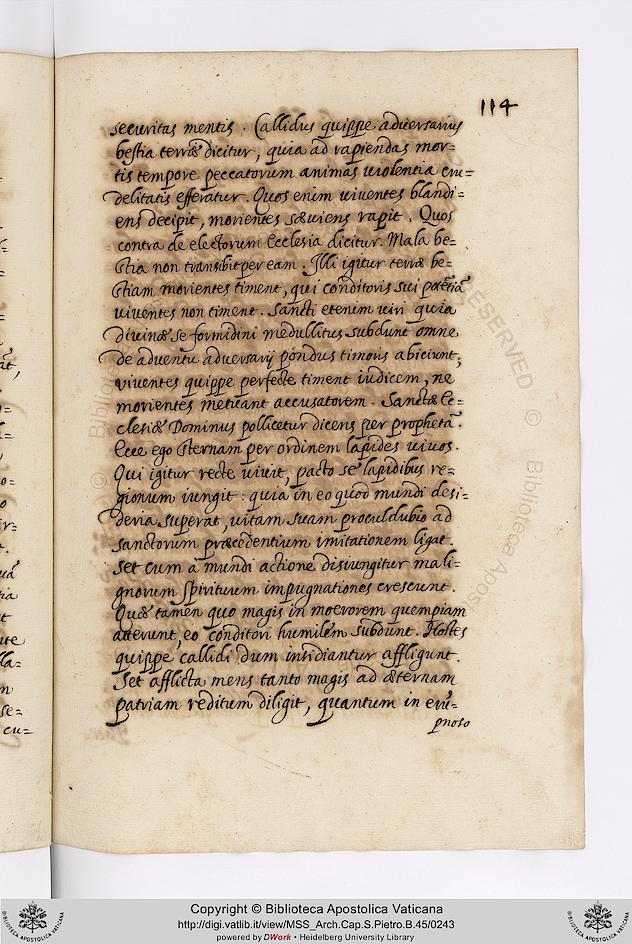 114
securitas mentis. Callidus quippe adversarius
bestia terræ dicitur, quia ad rapiendas mor=
tis tempore peccatorum animas violentia cru=
delitatis efferatur. Quos enim viventes blandi=
ens decipit, morientes sæviens rapit. Quos
contra de electorum Ecclesia dicitur. Mala be=
stia non transibit per eam. Illi igitur terræ be=
stiam morientes timent, qui conditoris sui potētiā
viventes non timent. Sancti etenim viri quia
divinæ se formidini medullitus subdunt omne
de adventu adversarij pondus timoris abiciunt;
viventes quippe perfecte timent iudicem, ne
morientes metuant accusatorem. Sanctæ Ec=
clesiæ Dominus pollicetur dicens per prophetā.
Ecce ego sternam per ordinem lapides vivos.
Qui igitur recte vivit, pacto se lapidibus re=
gionum iungit: quia in eo quod mundi desi=
deria superat, vitam suam proculdubio ad
sanctorum præcedentium imitationem ligat.
Set cum a mundi actione disiungitur mali=
gnorum spirituum impugnationes crescunt.
Quæ tamen quo magis in moerorem quempiam
atterunt, eo conditori humilem subdunt. Hostes
quippe callidi dum insidiantur affligunt.
Set afflicta mens tanto magis ad æternam
patriam reditum diligit, quantum in erū=
pnoso
Copyright © Biblioteca Apostolica Vaticana
http://digi.vatlib.it/view/MSS_Arch.Cap.S.Pietro.B.45/0243
powered by DWork • Heidelberg University Library